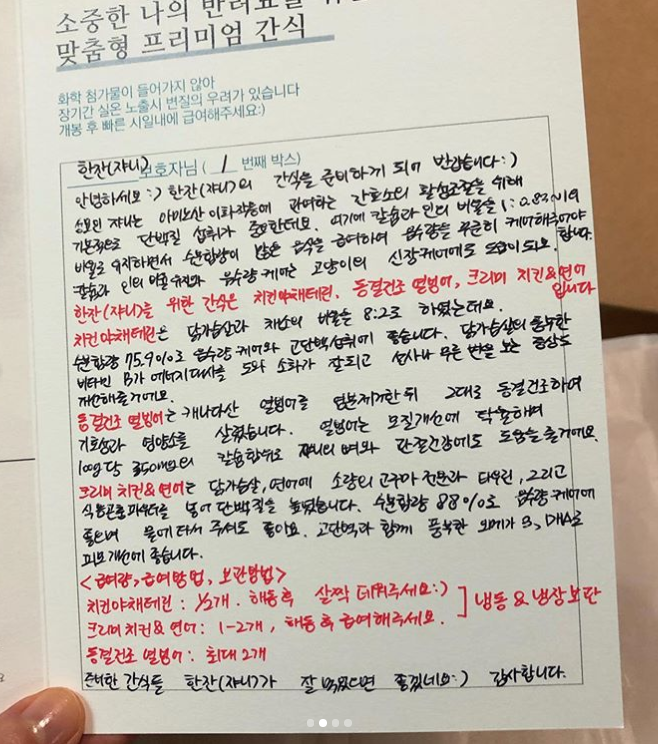 소중한 나의 반려묘를
맞춤형 프리미엄 간식
화학 첨가물이 들어가지 않아
장기간 실온 노출시 변질의 우려가 있습니다
개봉 후 빠른 시일내에 급여해주세요:)
한잔(쟈니)보호자님 ( 1 번째 박스)
안녕하세요:) 한잔(쟈니)의 간식을 준비하게 되어 반갑습니다:)
쟈니는 아미노산 이화작용에 관여하는 간효소의 활성조절을 위해
기본적으로 단백질 섭취가 중요한데요. 여기에 칼슘과 인의 비율을 1:0.83~
비율로 유지하면서 수분함량이 많은 음식을 급여하여 음수량을 꾸준히 케어해주어야 합니다.
칼슘과 인의 비율 유지와 음수량 케어는 고양이의 신장케어에도 도움이 되요.
한잔(쟈니)를 위한 간식은 치킨야채테린, 동결건조 열빙어, 크리미 치킨&연어 입니다
치킨야채테린은 닭가슴살과 채소의 비율을 8:2로 하였는데요.
수분함량 75.9%로 음수량 케어와 고단백섭취에 좋습니다. 닭가슴살의 풍부한
비타민 B가 에너지대사를 도와 소화가 잘되고 설사나 무른 변을 보는 증상도
개선해줄거에요.
동결건조 열빙어는 캐나다산 열빙어를 염분제거한 뒤 그대로 동결건조하여
기호성과 영양소를 살렸습니다. 열빙어는 모질개선에 탁월하며
100g당 350mg의 칼슘함유로 쟈니의 뼈와 관절건강에도 도움을 줄거에요.
크리미 치킨&연어는 닭가슴살, 연어에 소량의 고구마 전분과 타우린, 그리고
식용곤충파우더를 넣어 단백질을 높였습니다. 수분함량 88%로 음수량 케어에
좋으며 물에 타서 주셔도 좋아요. 고단백과 함께 풍부한 오메가3, DHA로
피모개선에 좋습니다.
<급여량, 급여방법, 보관방법>
치킨야채테린 : 1/2개. 해동후 살짝 데워주세요:)
크리미 치킨 & 연어 : 1-2개, 해동 후 급여해주세요. ] 냉동 & 냉장보관
동결건조 열빙어 : 최대 2개
준비한 간식들 한잔(쟈니)가 잘 먹었으면 좋겠네요:) 감사합니다.